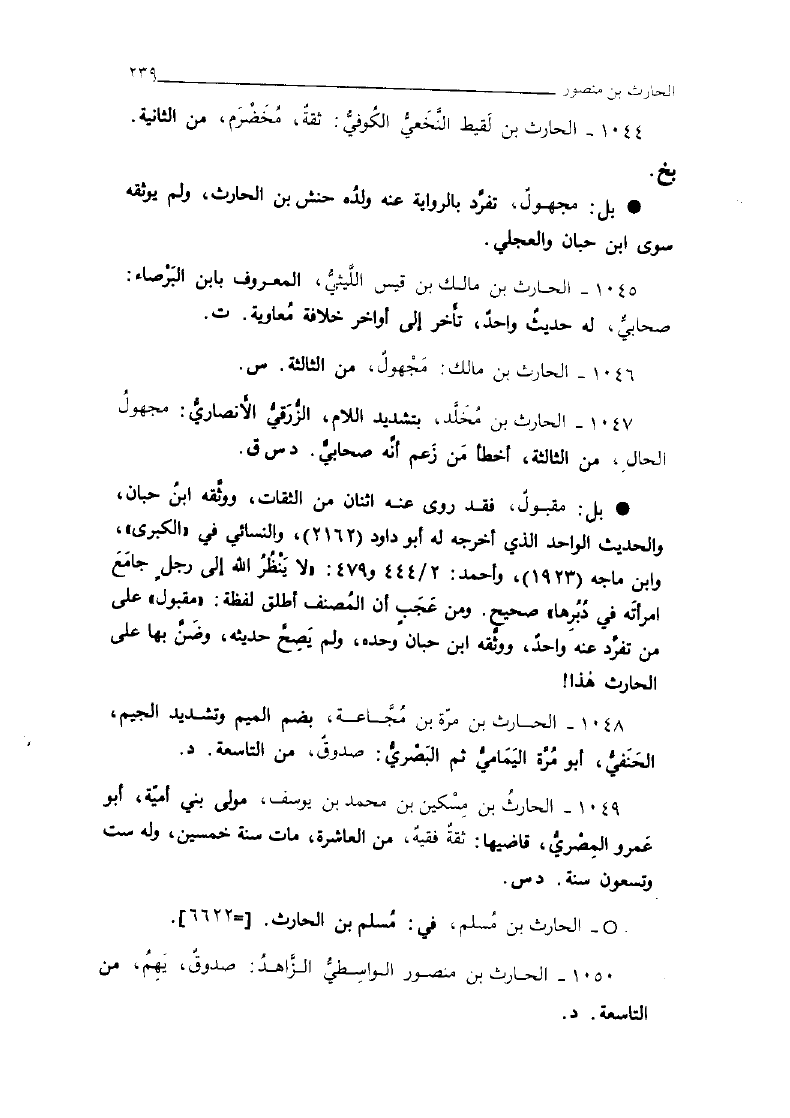 الحارث بن منصور ٢٣٩
١٠٤٤ ـ الحارث بن لَقيط النَّخَعيُّ الكُوفيُّ: ثقةٌ، مُخَضْرَم، من الثانية.
بخ.
● بل: مجهولٌ، تفرَّد بالرواية عنه ولدُه حنش بن الحارث، ولم يوثقه
سوى ابن حبان والعجلي.
١٠٤٥ ـ الحارث بن مالك بن قيس اللَّيثيُّ، المعروف بابن البَرْصاء:
صحابيٌّ، له حديثٌ واحدٌ، تأخر إلى أواخر خلافة مُعاوية. ت.
١٠٤٦ ـ الحارث بن مالك: مَجْهولٌ، من الثالثة. س.
١٠٤٧ ـ الحارث بن مُخَلَّد، بتشديد اللام، الزُّرَقيُّ الأنصاريُّ: مجهولُ
الحال، من الثالثة، أخطأ مَن زَعم أنَّه صحابيٌّ. د س ق.
● بل: مقبولٌ، فقد روى عنه اثنان من الثقات، ووثَّقه ابنُ حبان،
والحديث الواحد الذي أخرجه له أبو داود (٢١٦٢)، والنسائي في «الكبرى»،
وابن ماجه (١٩٢٣)، وأحمد: ٤٤٤/٢ و٤٧٩: «لا يَنْظُرُ الله إلى رجلٍ جامَعَ
امرأتَه في دُبُرِها» صحيح. ومن عَجَبٍ أن المُصنف أطلق لفظة: «مقبول» على
من تفرَّد عنه واحدٌ، ووثَّقه ابن حبان وحده، ولم يَصِحَّ حديثه، وضَنَّ بها على
الحارث هٰذا!
١٠٤٨ ـ الحارث بن مرّة بن مُجَّاعة، بضم الميم وتشديد الجيم،
الحَنَفيُّ، أبو مُرَّة اليَمَاميُّ ثم البَصْريُّ: صدوقٌ، من التاسعة. د.
١٠٤٩ ـ الحارثُ بن مِسْكين بن محمد بن يوسف، مولى بني أميّة، أبو
عَمرو المِصْريُّ، قاضيها: ثقةٌ فقيهٌ، من العاشرة، مات سنة خمسين، وله ست
وتسعون سنة. د س.
○ ـ الحارث بن مُسلم، في: مُسلم بن الحارث. [=٦٦٢٢].
١٠٥٠ ـ الحارث بن منصور الواسِطيُّ الزَّاهدُ: صدوقٌ، يَهِمُ، من
التاسعة. د.